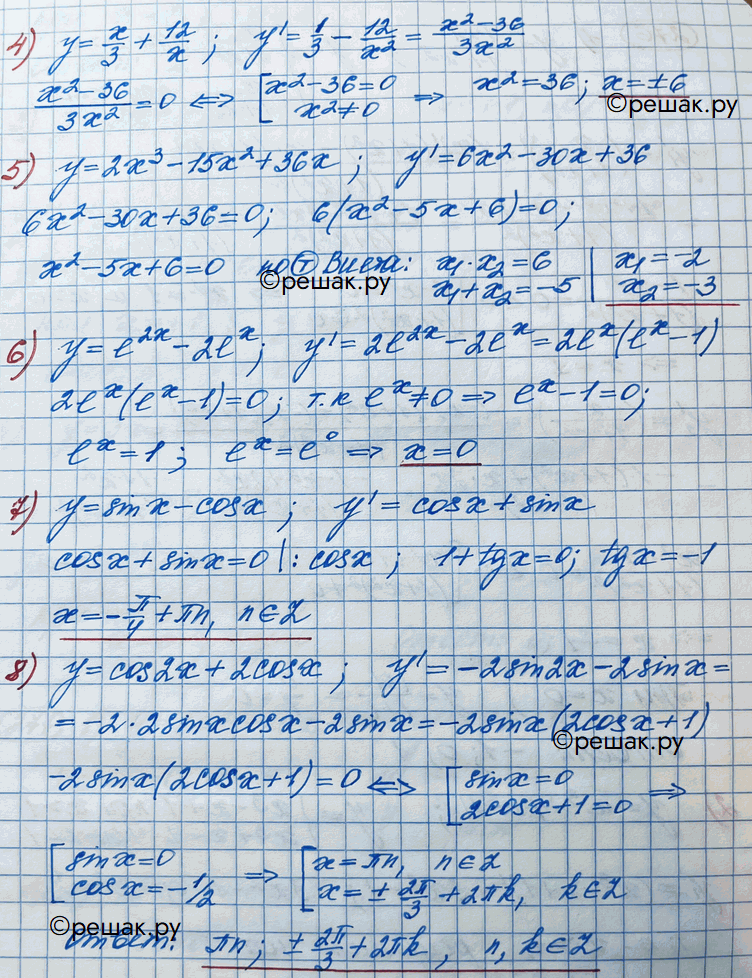 4) y = x/3 + 12/x ; y' = 1/3 - 12/x² = (x²-36)/3x²
(x²-36)/3x² = 0 ⇔ [x²-36=0 x²≠0 ⇒ x²=36; x=±6
©решак.ру
5) y=2x³-15x²+36x ; y'=6x²-30x+36
6x²-30x+36=0; 6(x²-5x+6)=0;
x²-5x+6=0 по Ⓣ Виета: x₁·x₂=6 x₁+x₂=-5 | x₁=-2 x₂=-3
©решак.ру
6) y=e^{2x}-2e^x; y'=2e^{2x}-2e^x=2e^x(e^x-1)
2e^x(e^x-1)=0; т.к e^x≠0 ⇒ e^x-1=0;
e^x=1; e^x=e⁰ ⇒ x=0
7) y=sinx-cosx ; y'=cosx+sinx
cosx+sinx=0 |:cosx ; 1+tgx=0; tgx=-1
x=-π/4+πn, n∈Z
8) y=cos2x+2cosx ; y'=-2sin2x-2sinx=
=-2·2sinxcosx-2sinx=-2sinx(2cosx+1)
©решак.ру
-2sinx(2cosx+1)=0 ⇔ [sinx=0 2cosx+1=0 ⇒
[sinx=0 cosx=-1/2 ⇒ [x=πn, n∈Z x=±2π/3+2πk, k∈Z
©решак.ру
Ответ: πn; ±2π/3+2πk, n,k∈Z